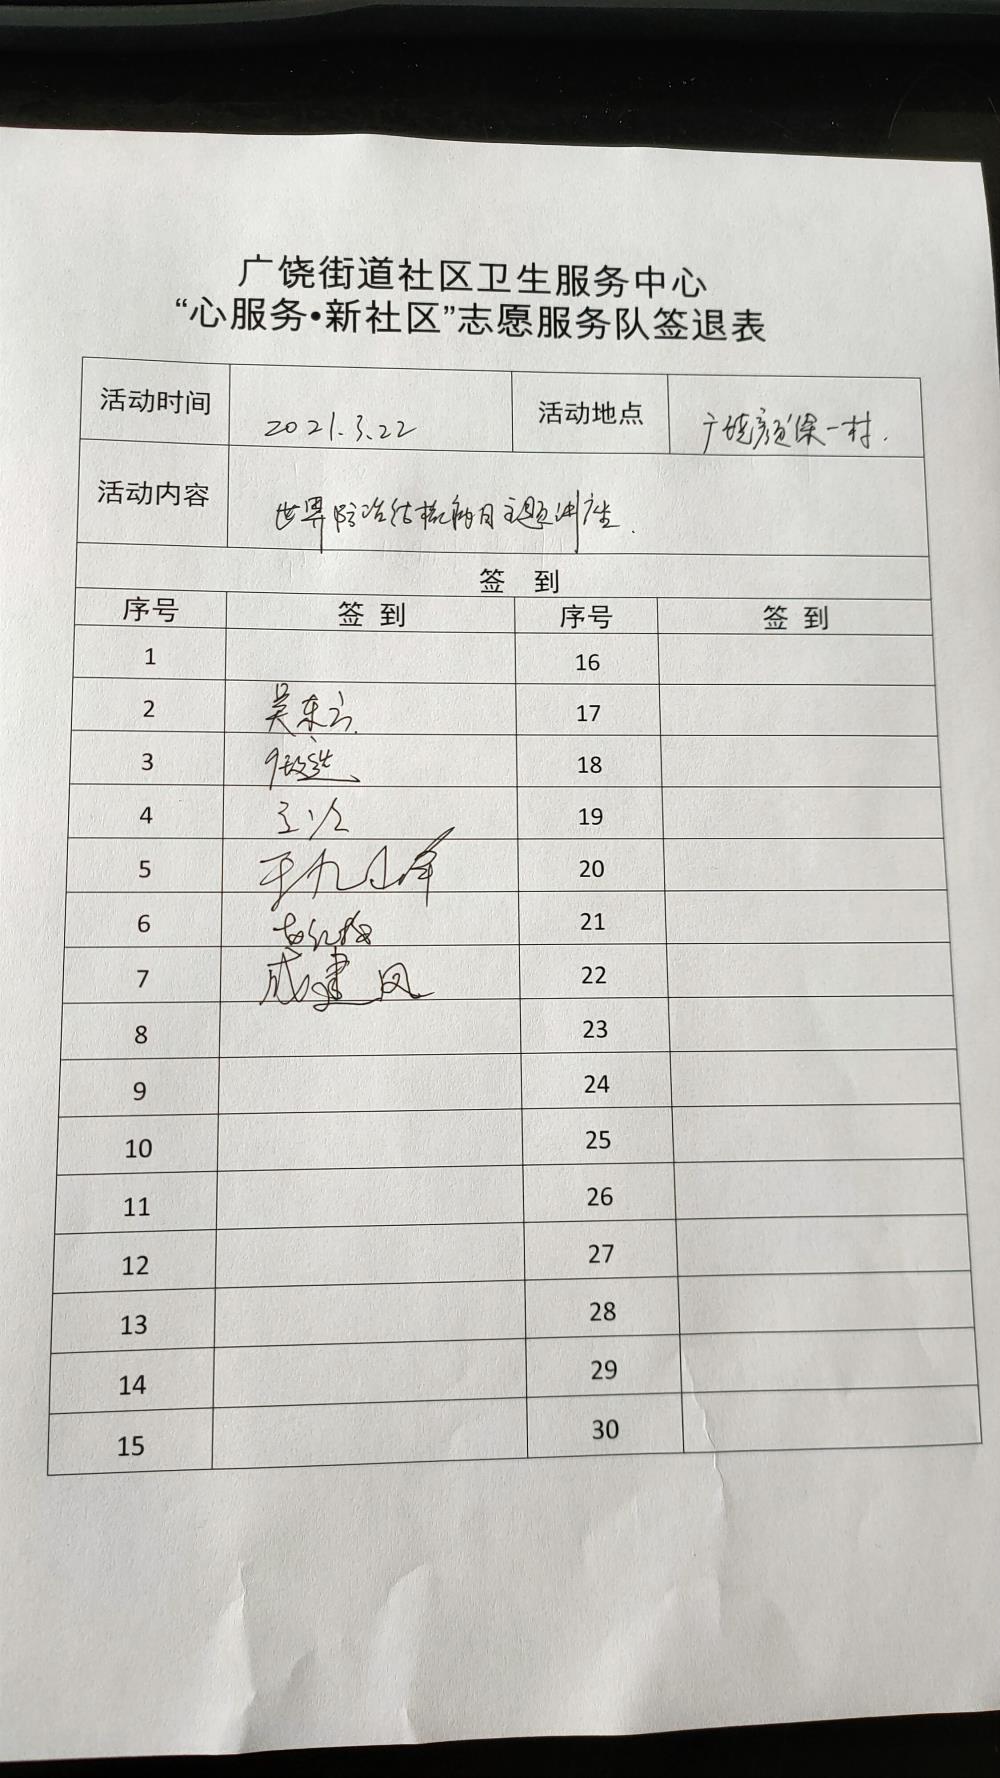 广饶街道社区卫生服务中心
“心服务•新社区”志愿服务队签退表
活动时间 2021.3.22 活动地点 广饶颜徐一村.
活动内容 世界防治结核病日主题讲座.
签 到
序号 签 到 序号 签 到
1 16
2 吴东方 17
3 18
4 19
5 20
6 21
7 成建凤 22
8 23
9 24
10 25
11 26
12 27
13 28
14 29
15 30